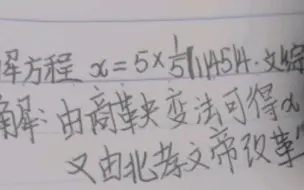 解方程 x=5×1/5 114514·文综
解:由商鞅变法可得x
又由北孝文帝改革